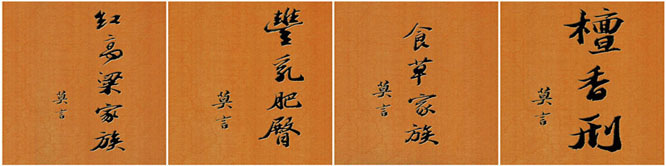 红高梁家族
莫言
豐乳肥臀
莫言
食草家族
莫言
檀香刑
莫言